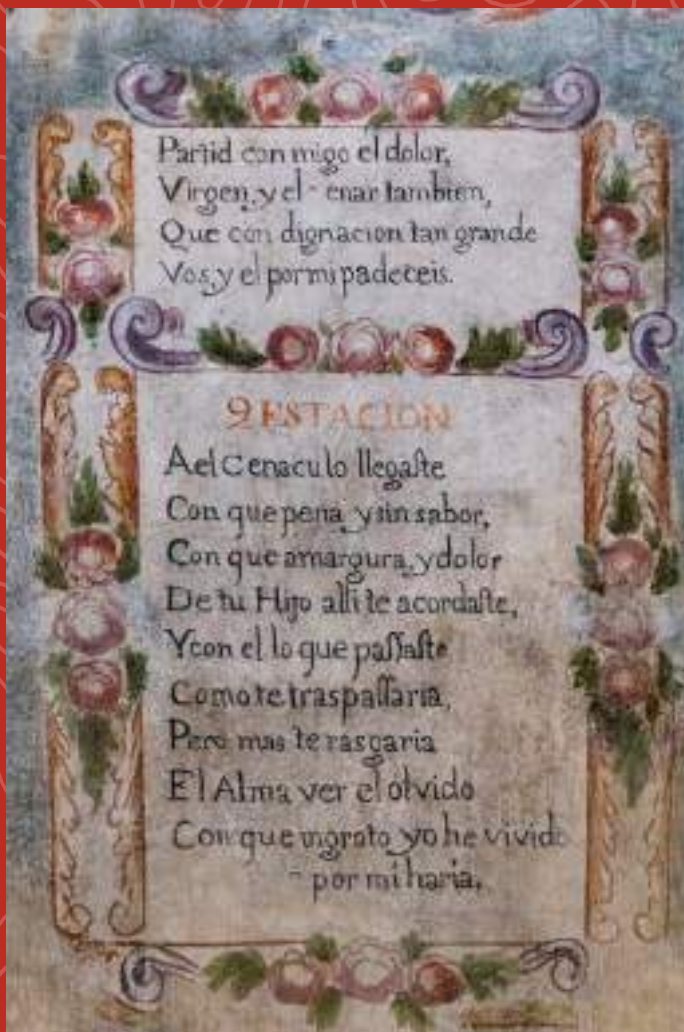 Partid con migo el dolor,
Virgen, y el - enar tambien,
Que con dignacion tan grande
Vos, y el por mi padeceis.
9 ESTACION
A el Cenaculo llegaſte
Con que pena y sin sabor,
Con que amargura, y dolor
De tu Hijo alli te acordaſte,
Y con el lo que paſſaſte
Como te traspaſſaria,
Pero mas te rasgaria
El Alma ver el olvido
Con que ingrato yo he vivido
- por mi haria.